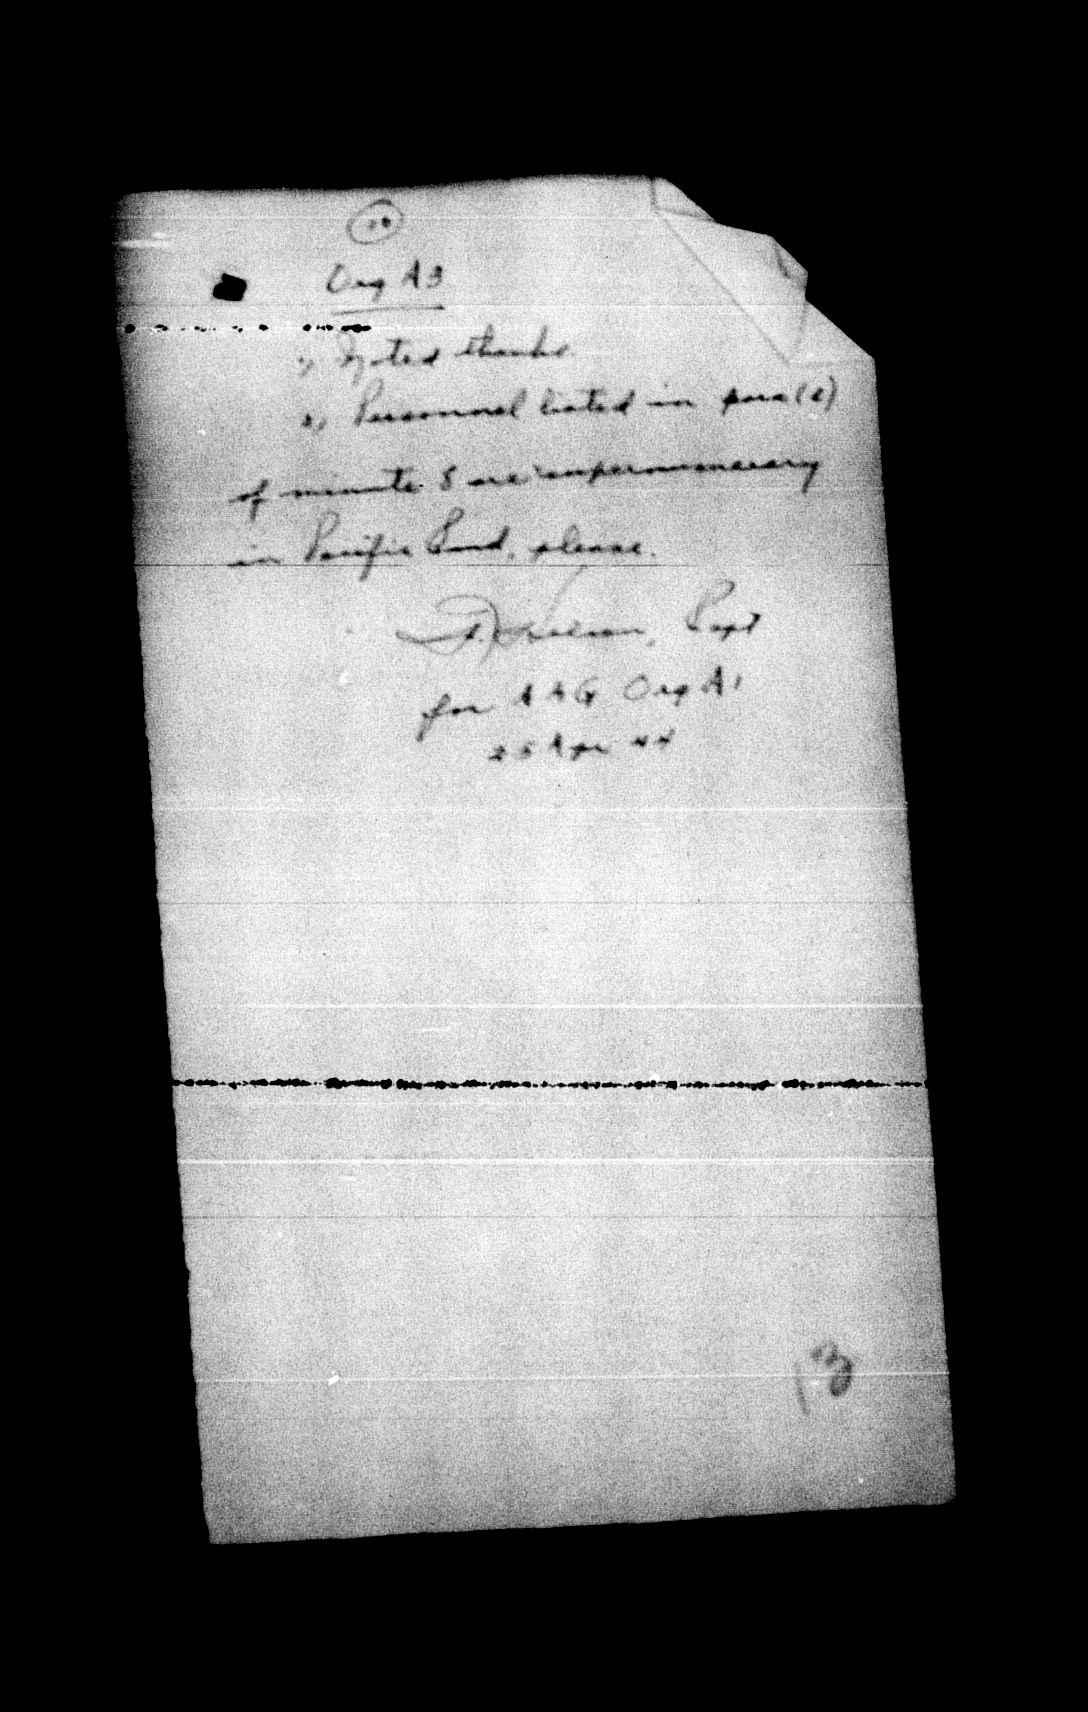 Org A3
1) Noted thanks.
2) Personnel listed in para (c)
of minute 8 are supernumerary
in Pacific Comd, please.
Capt
for AAG Org A1
25 Apr 44
13